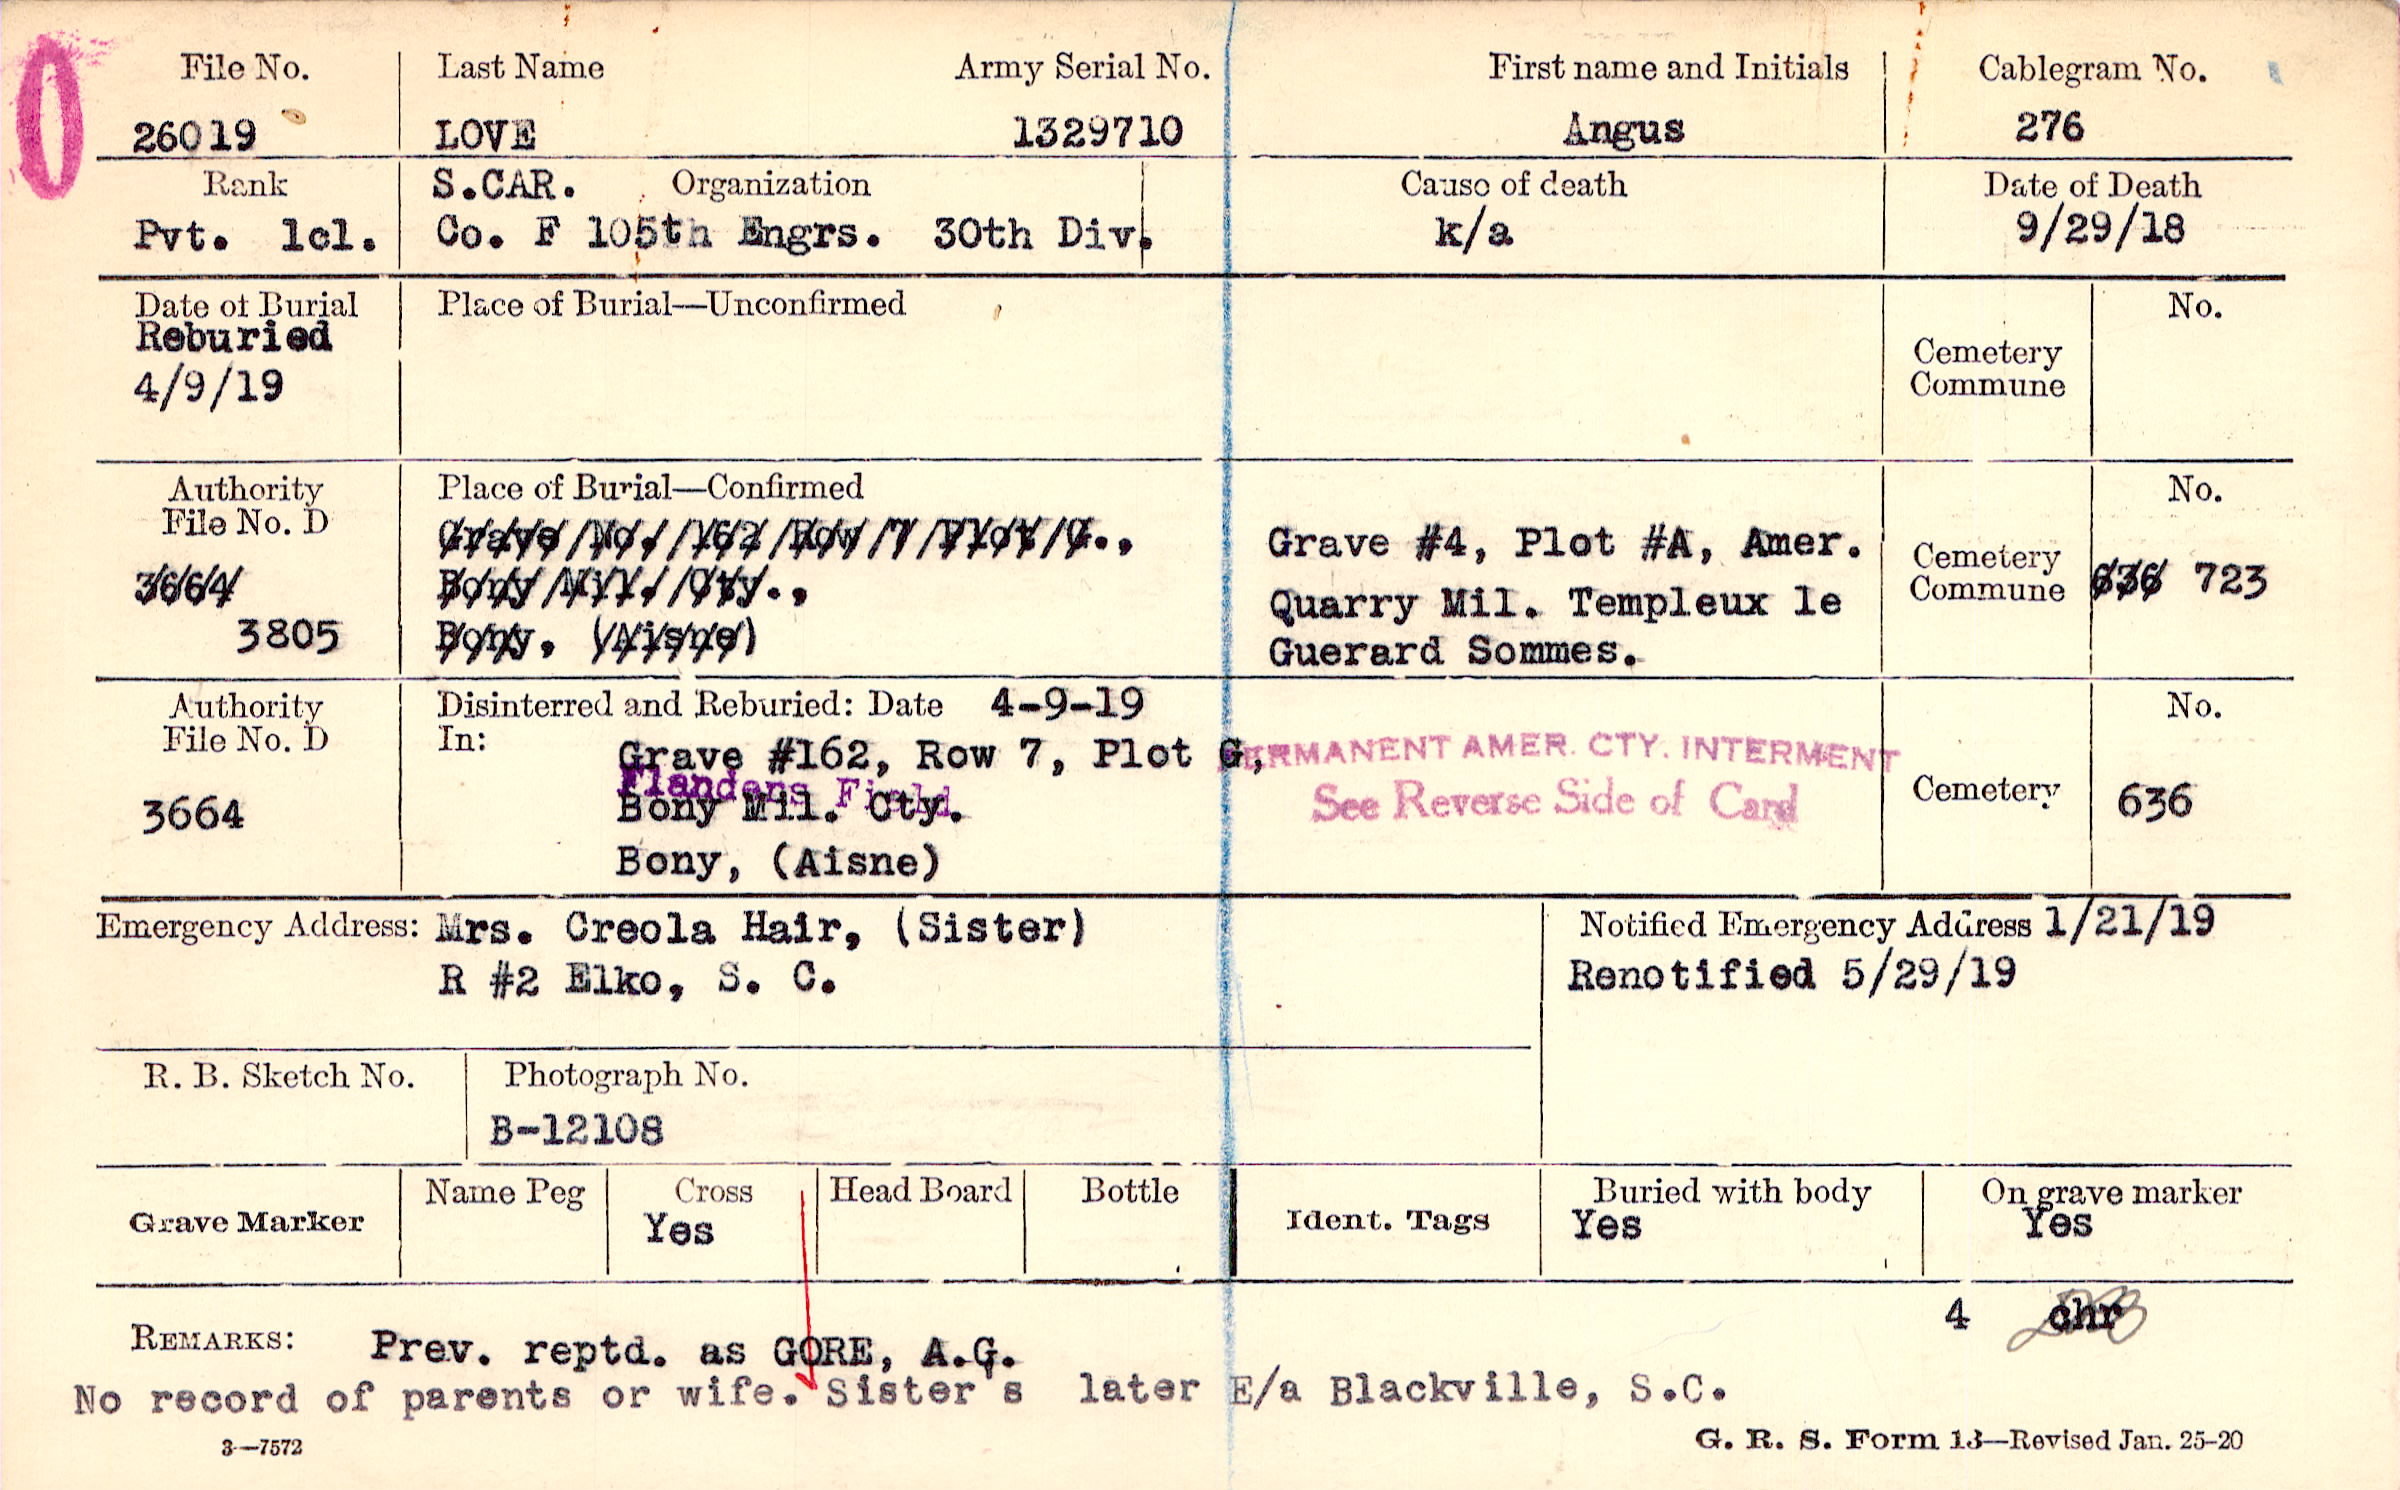 File No. Last Name Army Serial No. First name and Initials Cablegram No.
26019 LOVE 1329710 Angus 276
Rank S.CAR. Organization Cause of death Date of Death
Pvt. 1cl. Co. F 105th Engrs. 30th Div. k/a 9/29/18
Date of Burial Place of Burial—Unconfirmed No.
Reburied
4/9/19
Cemetery
Commune
Authority Place of Burial—Confirmed No.
File No. D
Grave No. 162 Row 7 Plot G., Grave #4, Plot #A, Amer.
3664 Bony Mil. Cty., Quarry Mil. Templeux le Cemetery Commune 636 723
3805 Bony. (Aisne) Guerard Sommes.
Authority Disinterred and Reburied: Date 4-9-19 No.
File No. D In:
Grave #162, Row 7, Plot G, PERMANENT AMER. CTY. INTERMENT
Flanders Field
3664 Bony Mil. Cty. See Reverse Side of Card Cemetery 636
Bony, (Aisne)
Emergency Address: Mrs. Creola Hair, (Sister) Notified Emergency Address 1/21/19
R #2 Elko, S. C. Renotified 5/29/19
R. B. Sketch No. Photograph No.
B-12108
Grave Marker Name Peg Cross Head Board Bottle Ident. Tags Buried with body On grave marker
Yes Yes Yes
4 chr
REMARKS: Prev. reptd. as GORE, A.G.
No record of parents or wife. Sister's later E/a Blackville, S.C.
3—7572 G. R. S. Form 13—Revised Jan. 25-20